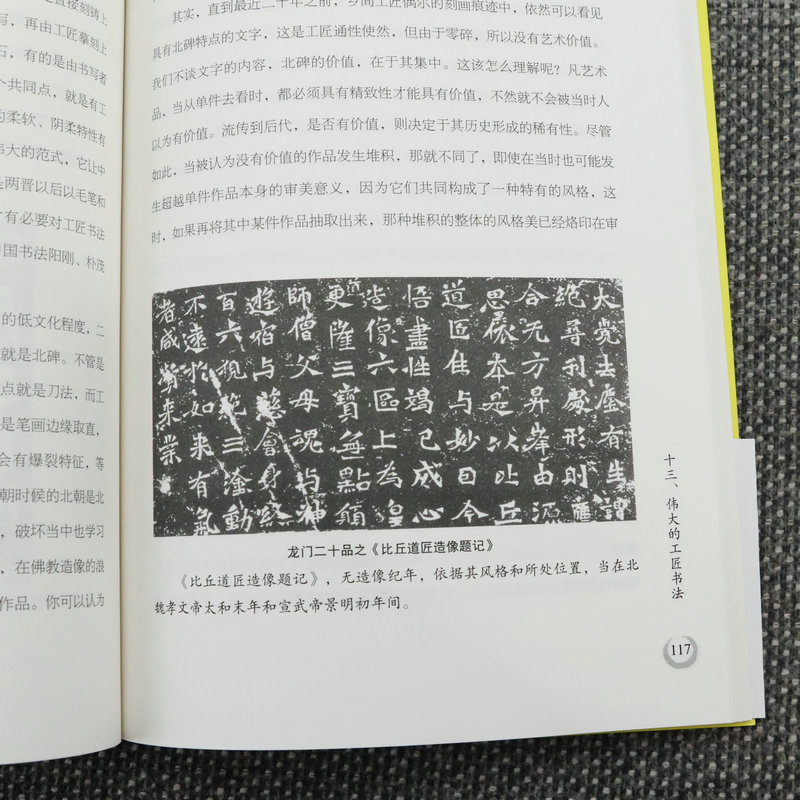 直接刻铸上
写，再由工匠摹刻上
石，有的是由书写者
个共同点，就是有工
的柔软、阴柔特性有
伟大的范式，它让中
是两晋以后以毛笔和
才有必要对工匠书法
国书法阳刚、朴茂
的低文化程度，二
就是北碑。不管是
点就是刀法，而工
是笔画边缘取直，
会有爆裂特征，等
朝时候的北朝是北
，破坏当中也学习
，在佛教造像的浪
作品。你可以认为
其实，直到最近二十年之前，乡间工匠偶尔的刻画痕迹中，依然可以看见
具有北碑特点的文字，这是工匠通性使然，但由于零碎，所以没有艺术价值。
我们不谈文字的内容，北碑的价值，在于其集中。这该怎么理解呢？凡艺术
品，当从单件去看时，都必须具有精致性才能具有价值，不然就不会被当时人
以为有价值。流传到后代，是否有价值，则决定于其历史形成的稀有性。尽管
如此，当被认为没有价值的作品发生堆积，那就不同了，即使在当时也可能发
生超越单件作品本身的审美意义，因为它们共同构成了一种特有的风格，这
时，如果再将其中某件作品抽取出来，那种堆积的整体的风格美已经烙印在审
大覺去塵有生謂
絶尋刊厥形則應
合无方昇岸由源
思依本是以比丘
道匠住与妙因今
悟盡性竭已成心
造像六區上為皇
更隆三寶無點願
師僧父母魂与神
遊宿与慈會身終
百六視乾三塗動
不遠怜如来有氣
者咸資来業
龙门二十品之《比丘道匠造像题记》
《比丘道匠造像题记》，无造像纪年，依据其风格和所处位置，当在北
魏孝文帝太和末年和宣武帝景明初年间。
十三、伟大的工匠书法
117